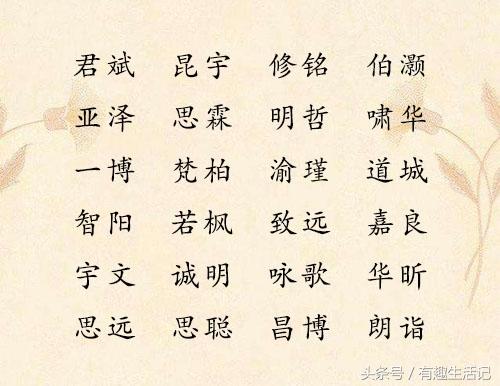 君斌 昆宇 修铭 伯灏
亚泽 思霖 明哲 啸华
一博 梵柏 渝瑾 道城
智阳 若枫 致远 嘉良
宇文 诚明 咏歌 华昕
思远 思聪 昌博 朗诣
头条号 / 有趣生活记